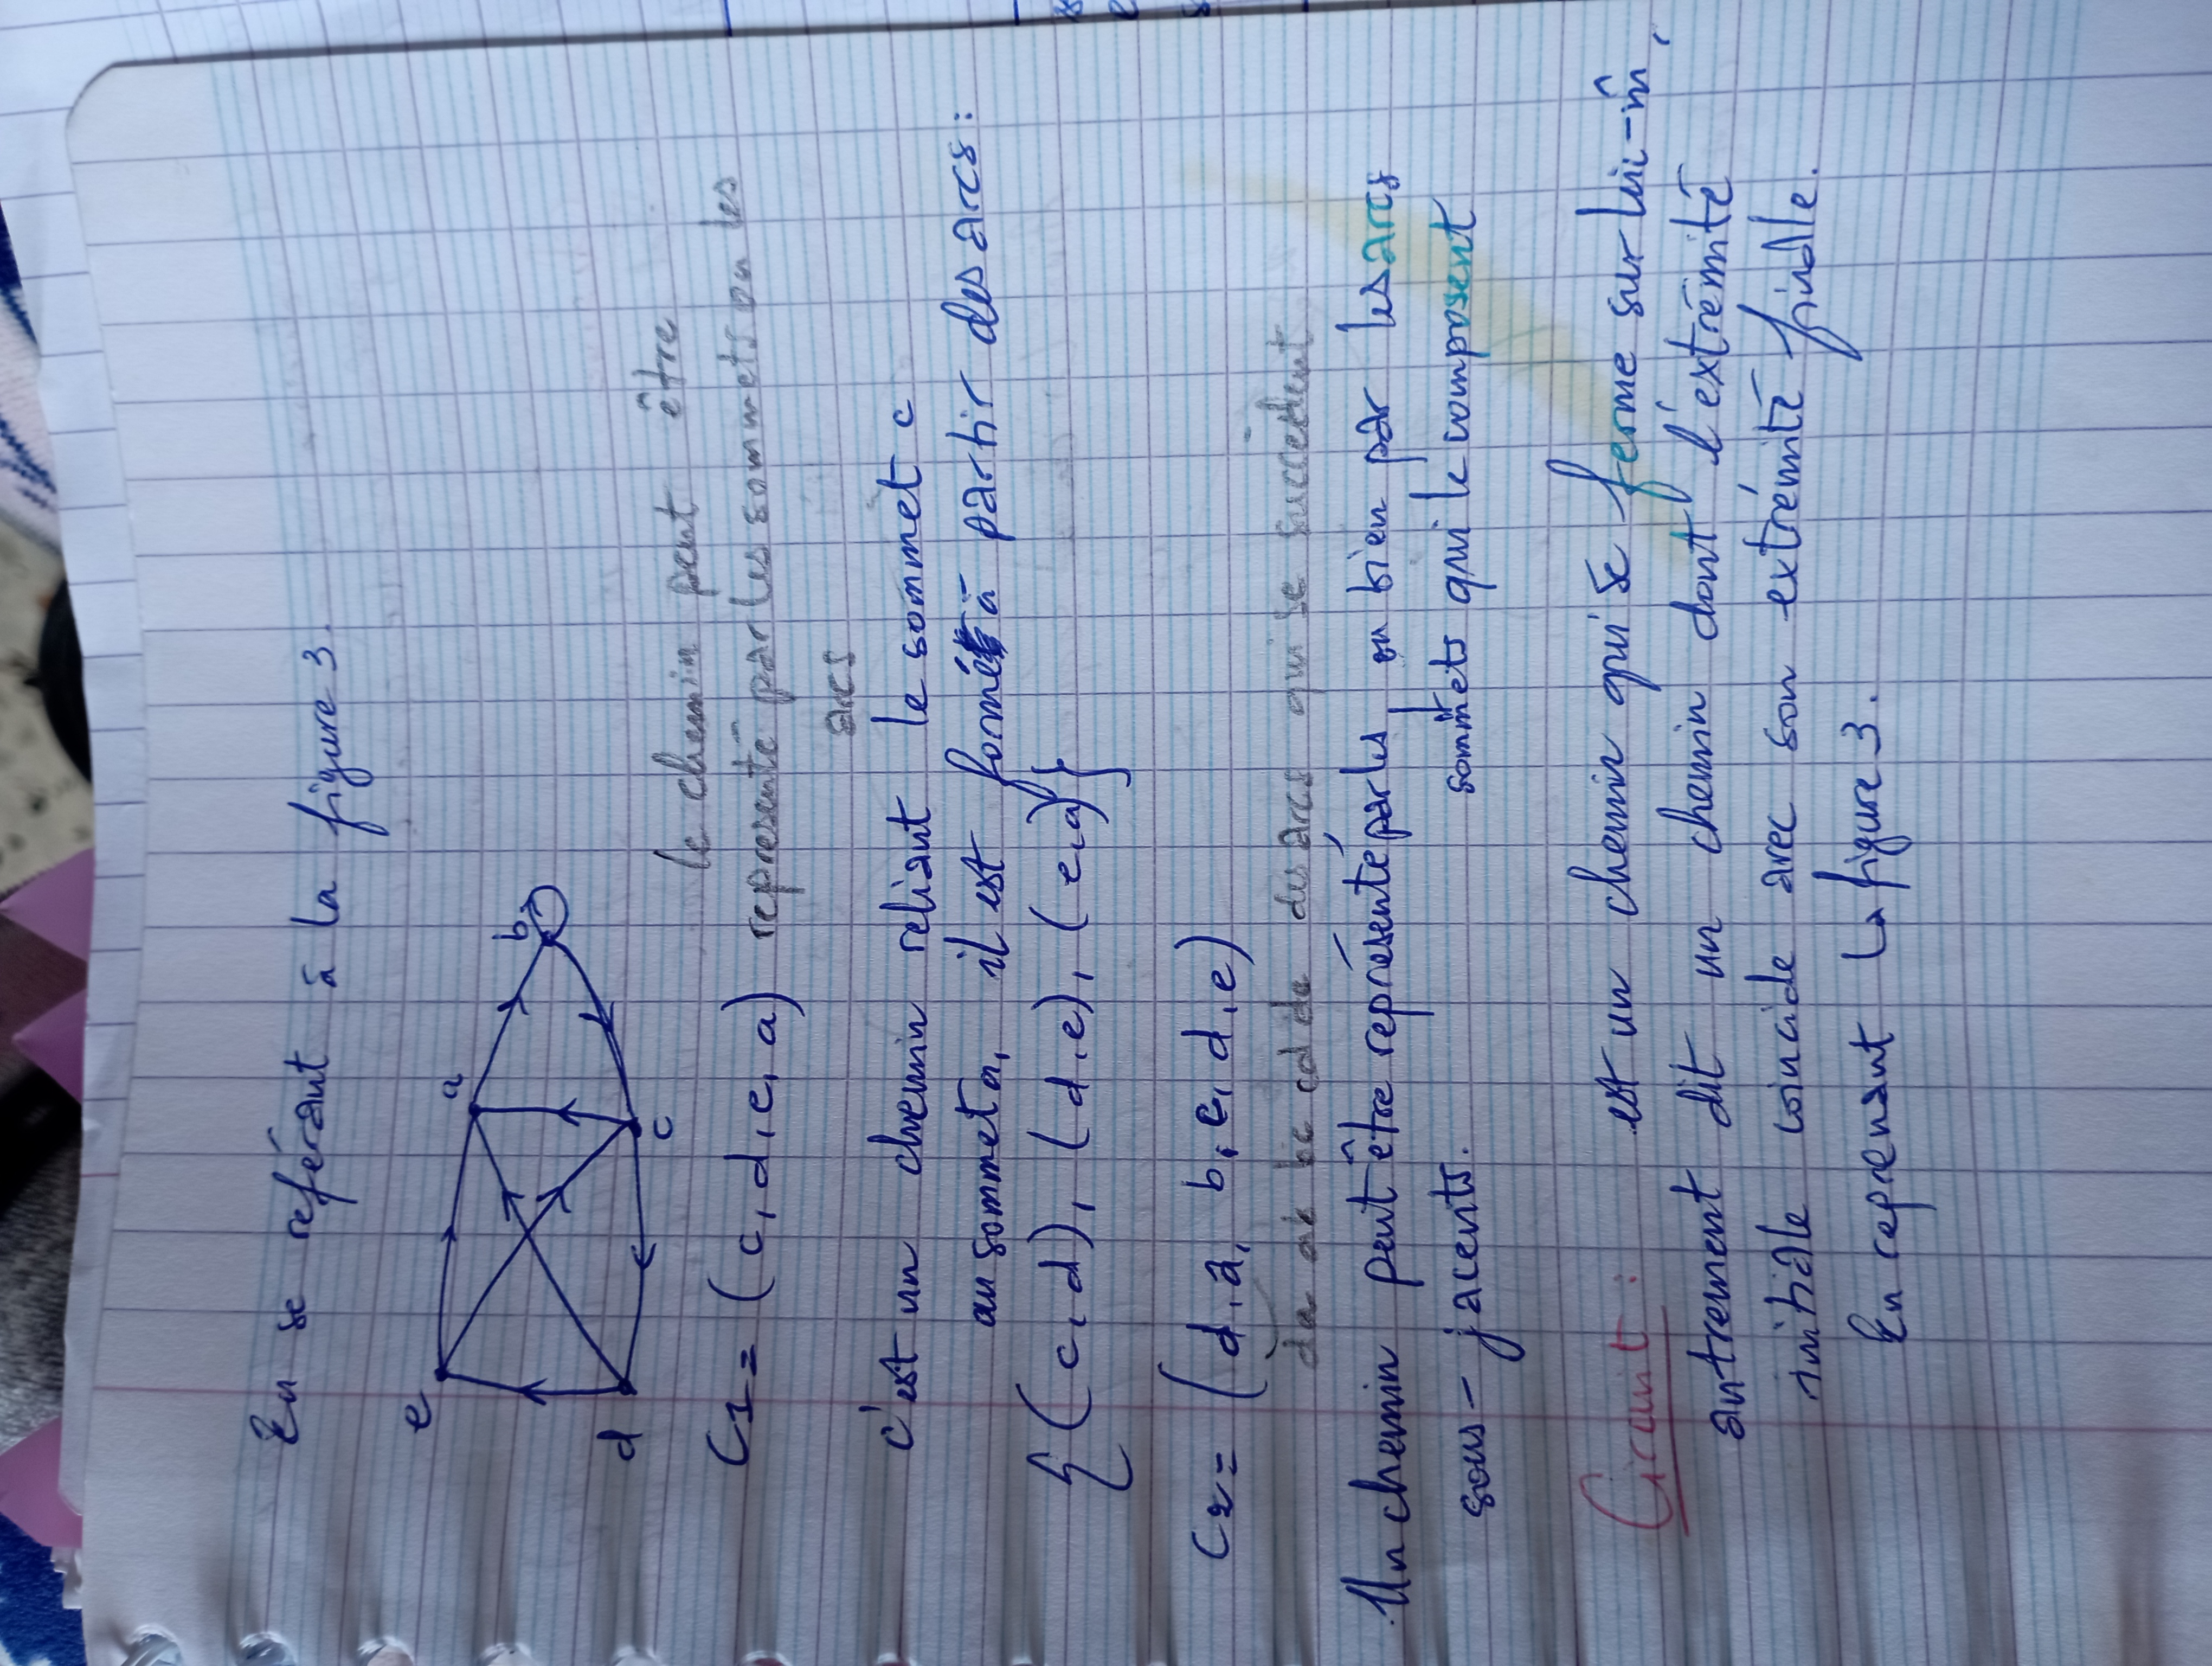 En se referant à la figure 3.
e
a
d
b
c
le chemin peut être
C1 = (c, d, e, a) représenté par les sommets ou les
arcs
c'est un chemin reliant le sommet c
au sommet a, il est formé à partir des arcs :
{(c, d), (d, e), (e, a)}
C2 = (d, a, b, c, d, e)
da ab bc cd de des arcs qui se succèdent
Un chemin peut être représenté par les, ou bien par les arcs
sous-jacents. sommets qui le composent
Circuit : est un chemin qui se ferme sur lui-m̂,
autrement dit un chemin dont l'extrémité
initiale coincide avec son extrémité finale.
En reprenant la figure 3.